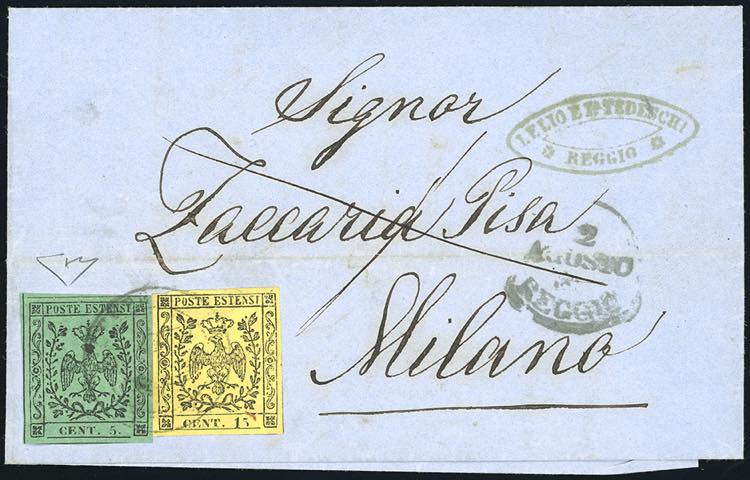 Signor
Zaccaria Pisa
Milano
LELIO E F. TEDESCHI
REGGIO
2
AGOSTO
REGGIO
POSTE ESTENSI
CENT. 5.
POSTE ESTENSI
CENT. 15